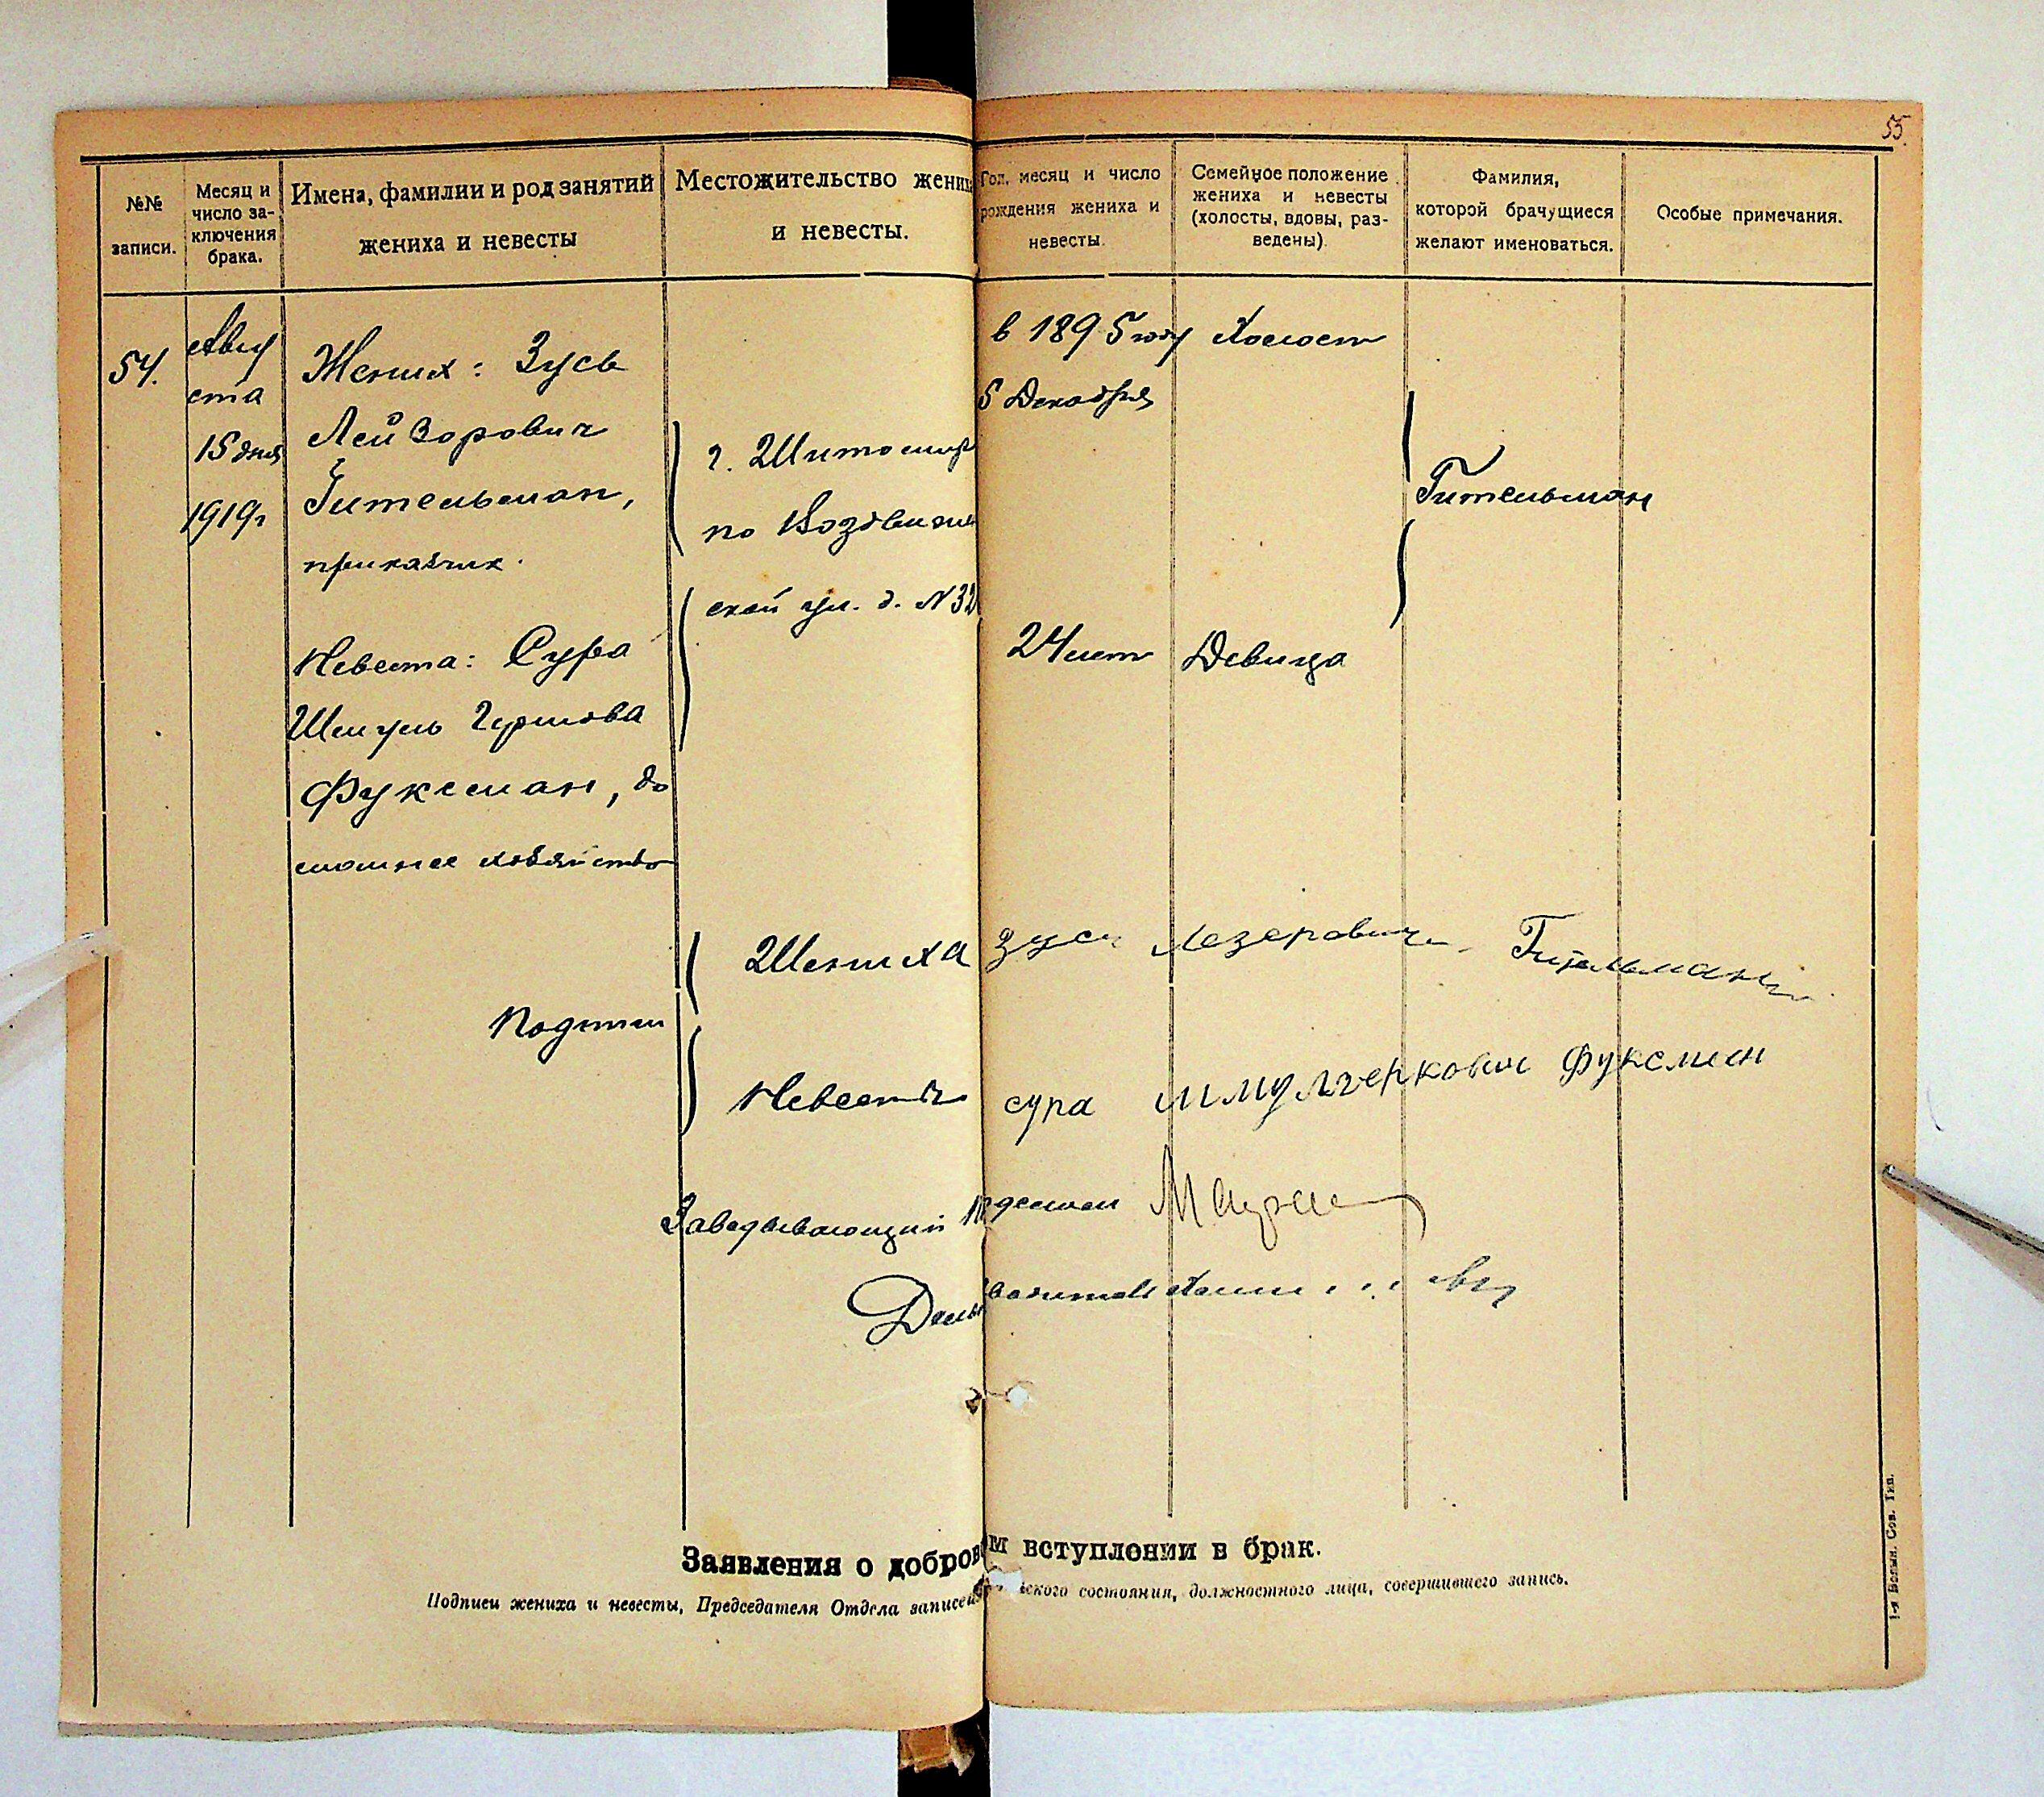 55.
№№ записи.
Месяц и число заключения брака.
Имена, фамилии и род занятий жениха и невесты
Местожительство жениха и невесты.
Год, месяц и число рождения жениха и невесты.
Семейное положение жениха и невесты (холосты, вдовы, разведены).
Фамилия, которой брачущиеся желают именоваться.
Особые примечания.
54.
Авгу
ста
15 дня
1919г
Жених: Зусь
Лейзорович
Гительман,
приказчик.
Невеста: Сура
Шмуль Гершова
Фуксман, до
машнее хозяйство
г. Житомир
по Воздвижен
ской ул. д. № 32
в 1895 году
5 Декабря
24 лет
Холост
Девица
Гительман
Подписи
Жениха Зусь Лезерович Гительман
Невесты сура шмулгеркович Фуксман
Заведывающий
Заявления о добров м вступлении в брак.
Подписи жениха и невесты, Председателя Отдела записей ского состояния, должностного лица, совершившего запись.
1-я Волын. Сов. Тип.